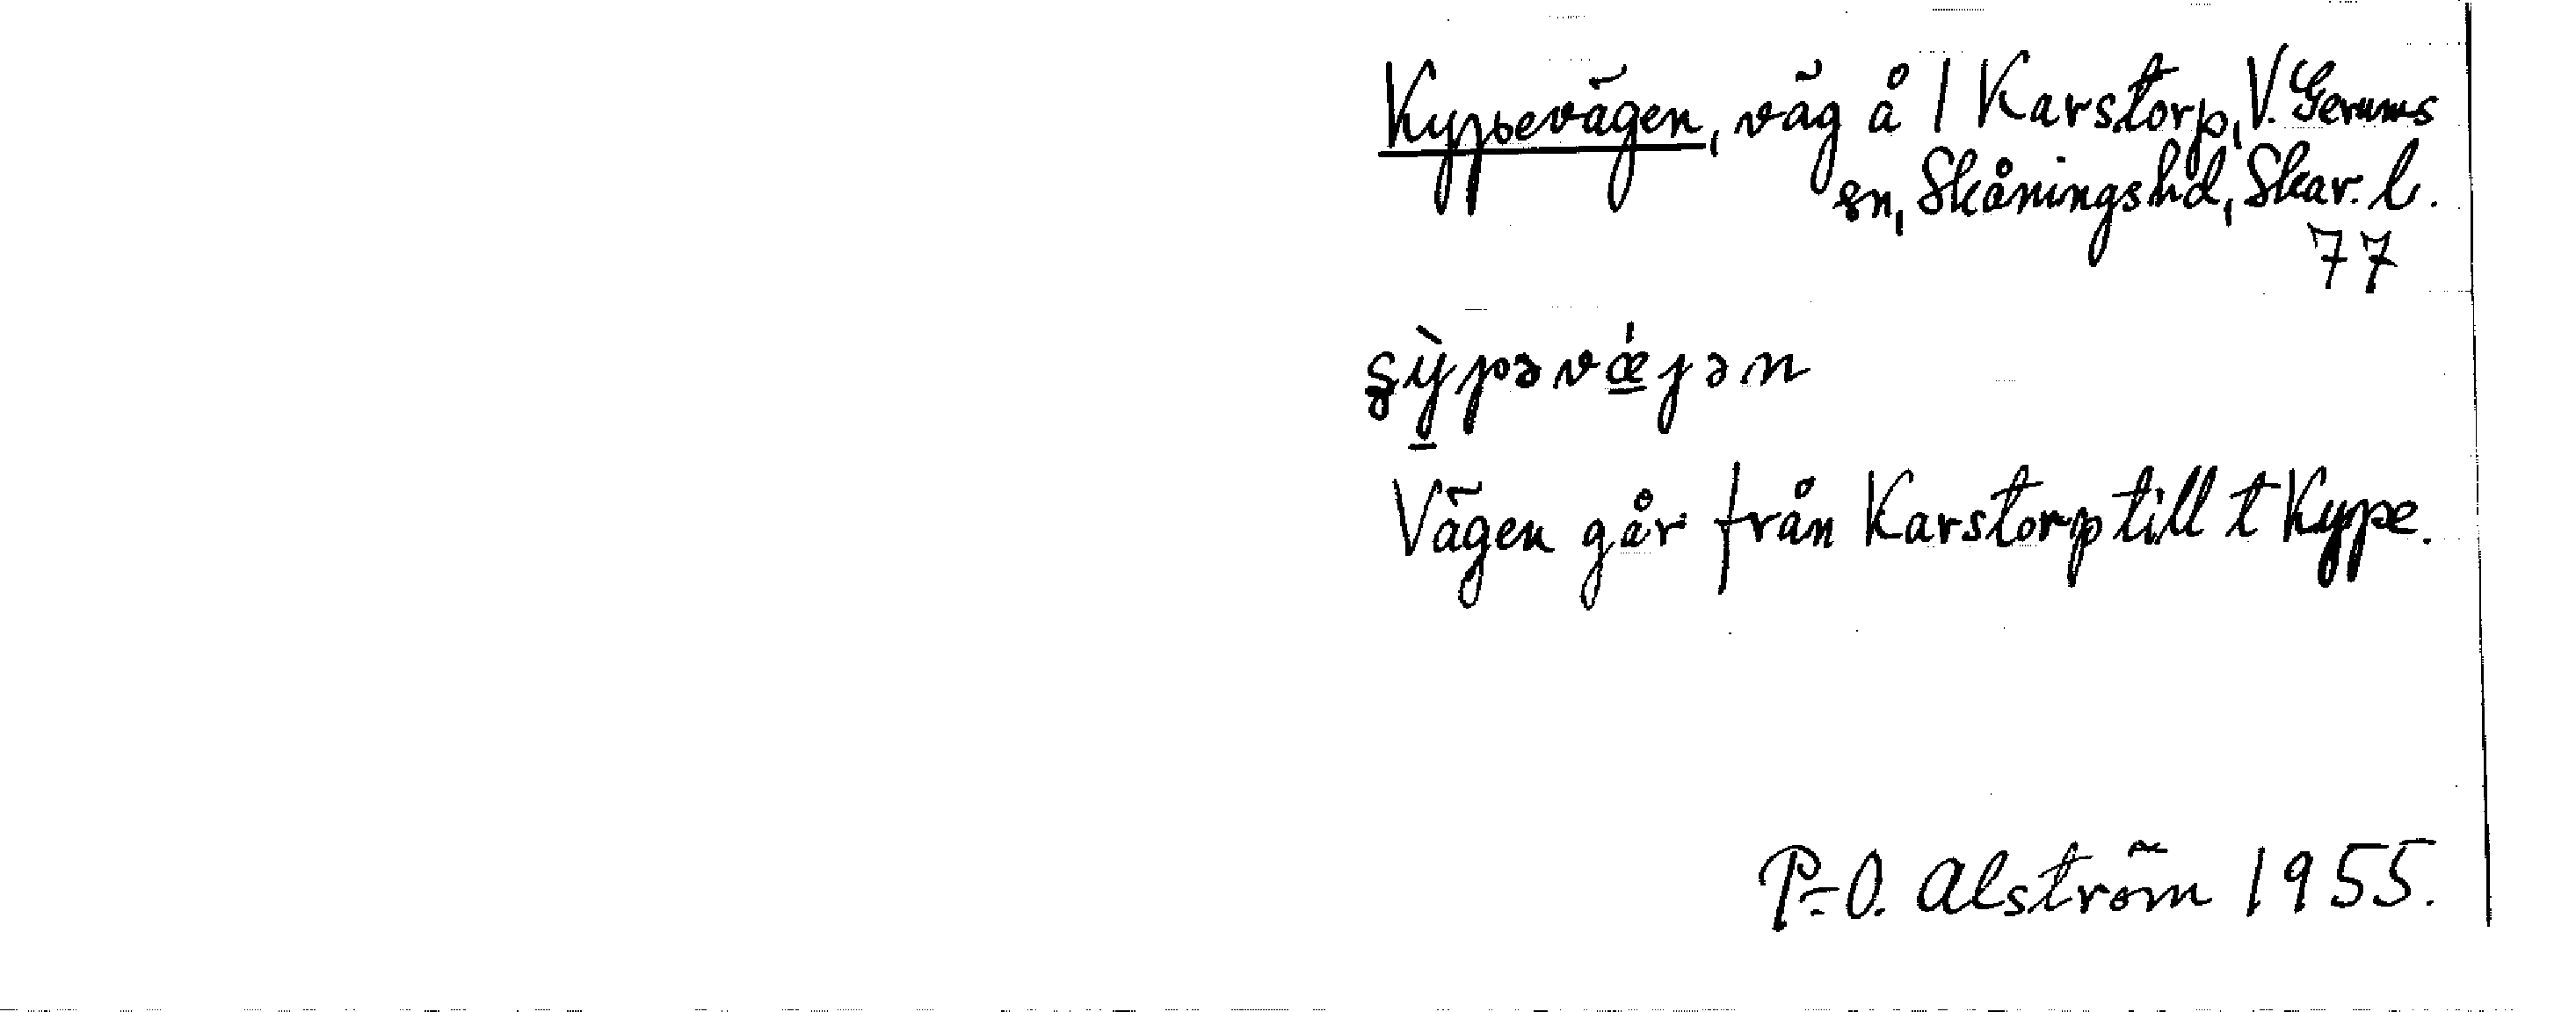 Kypevägen, väg å 1 Karstorp, V. Gerums
sn, Skånings hd, Skar. l.
77
Vägen går från Karstorp till t Kype.
P.-O. Alström 1955.